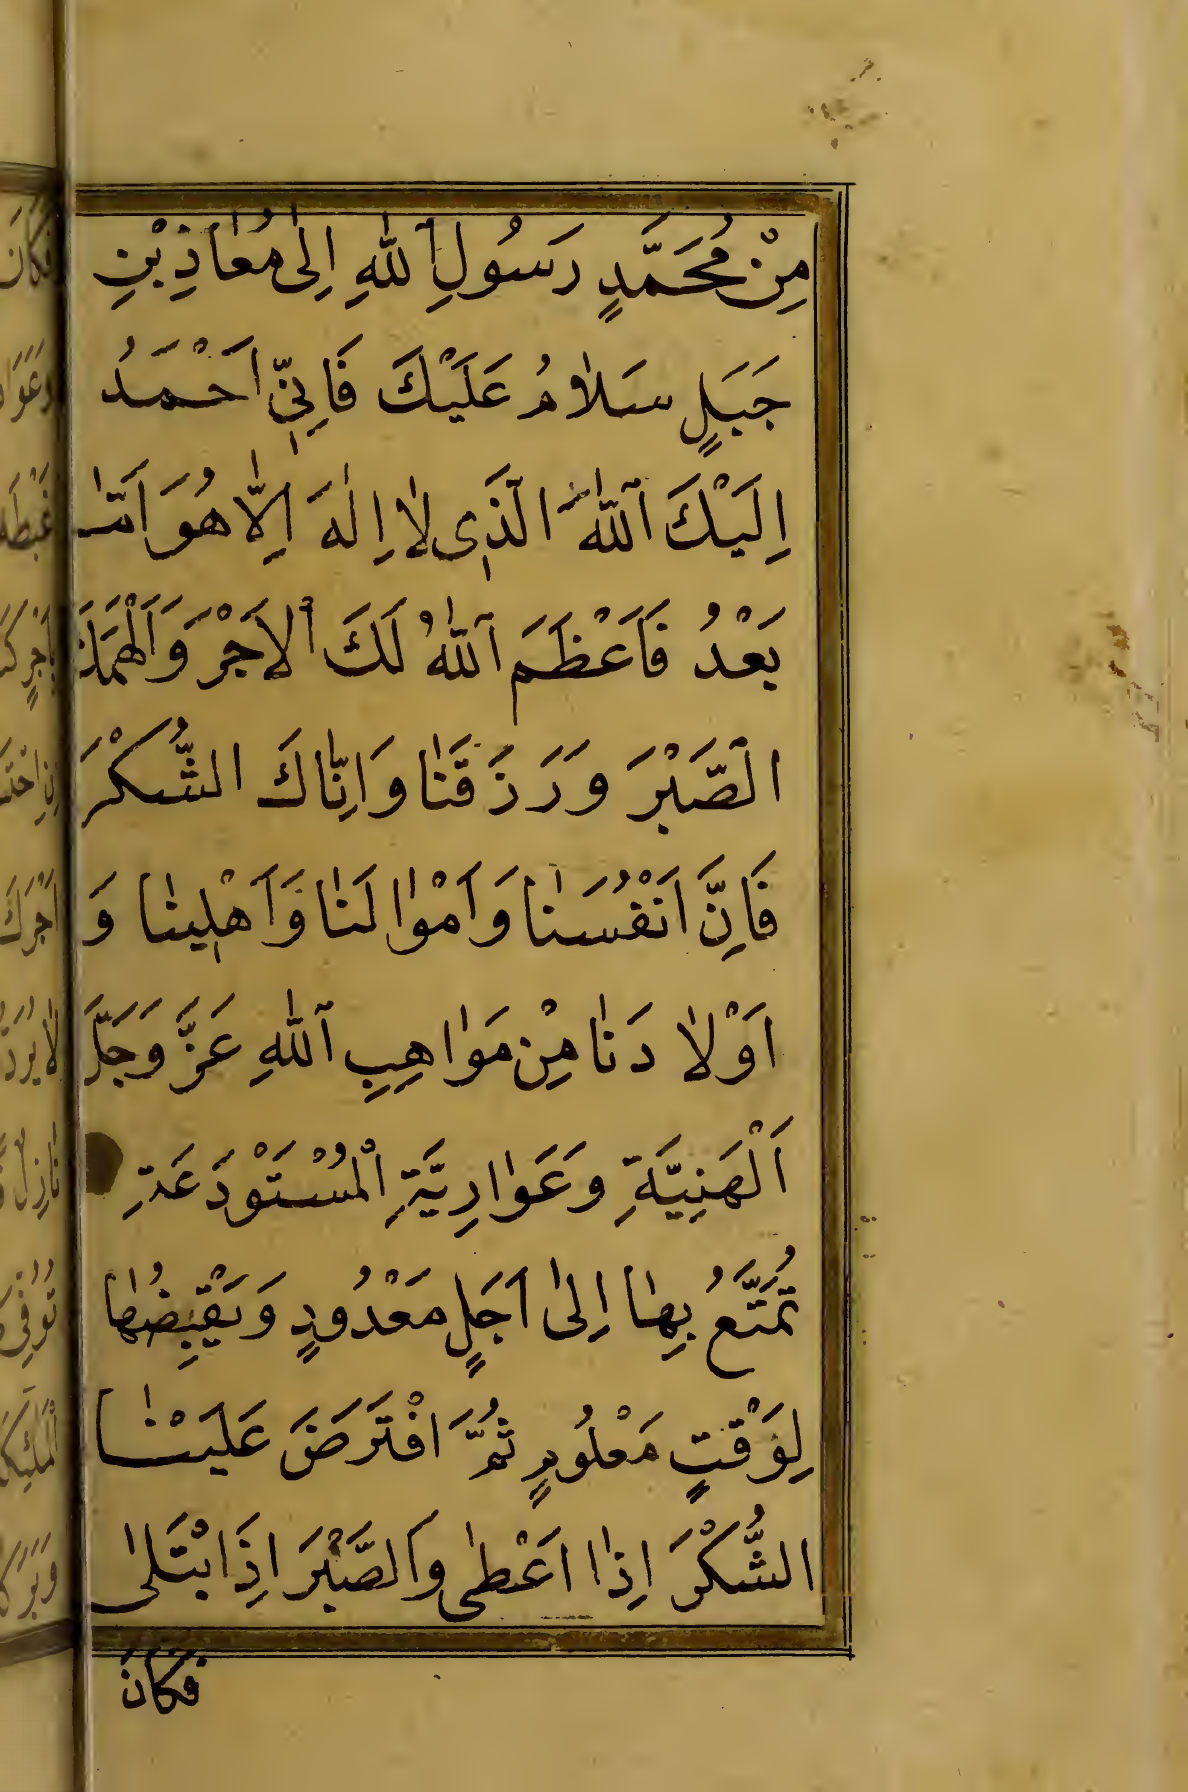 مِنْ مُحَمَّدٍ رَسُولِ اللّٰهِ اِلٰى مُعٰاذِ بْنِ
جَبَلٍ سَلٰامُ عَلَيْكَ فَاِنّٖى اَحْمَدُ
اِلَيْكَ اللّٰهَ الَّذٖى لٰا اِلٰهَ اِلّٰا هُوَ اَمّٰا
بَعْدُ فَاَعْظَمَ اللّٰهُ لَكَ الْاَجْرَ وَاَلْهَمَكَ
الصَّبْرَ وَرَزَقَنٰا وَاِيّٰاكَ الشُّكْرَ
فَاِنَّ اَنْفُسَنٰا وَاَمْوٰالَنٰا وَاَهْلٖينٰا وَ
اَوْلٰادَنٰا مِنْ مَوٰاهِبِ اللّٰهِ عَزَّ وَجَلَّ
اَلْهَنِيَّةِ وَعَوٰارِيَّةِ الْمُسْتَوْدَعَةِ
تُمَتَّعُ بِهٰا اِلٰى اَجَلٍ مَعْدُودٍ وَيَقْبِضُهٰا
لِوَقْتٍ مَعْلُومٍ ثُمَّ افْتَرَضَ عَلَيْنٰا
الشُّكْرَ اِذٰا اَعْطٰى وَالصَّبْرَ اِذَا ابْتَلٰى
فكانَ